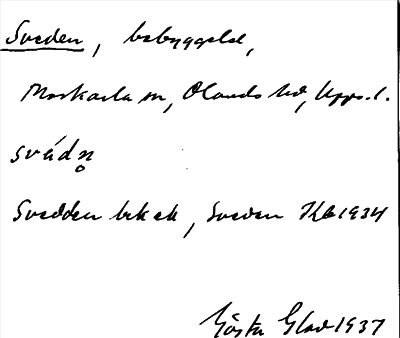 Sveden, bebyggelse,
Morkarla sn, Olands hd, Upps. l.
svádn̥
Svedden bekek, Sveden Kb 1934
Gösta Glad 1937